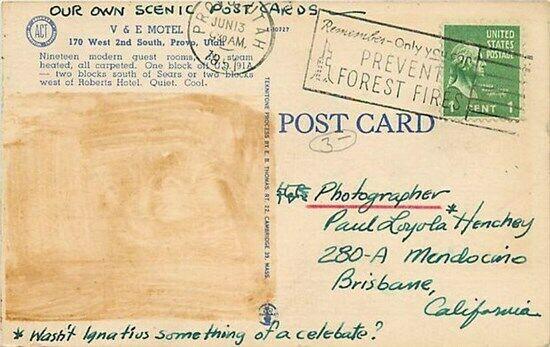 OUR OWN SCENIC POST CARDS
ACT
V & E MOTEL
170 West 2nd South, Provo, Utah
Nineteen modern guest rooms, steam
heated, all carpeted. One block off 91A
— two blocks south of Sears or two blocks
west of Roberts Hotel. Quiet. Cool.
PROVO, UTAH
JUN 13
AM
Remember—Only you can
PREVENT
FOREST FIRES
UNITED
STATES
POSTAGE
CENT 1
TEKNITONE PROCESS BY E. B. THOMAS, RT. 22, CAMBRIDGE 39, MASS.
POST CARD
3-
Photographer
Paul Loyola* Henchey
280-A Mendocino
Brisbane,
California
* Wasn't Ignatius something of a celebate?